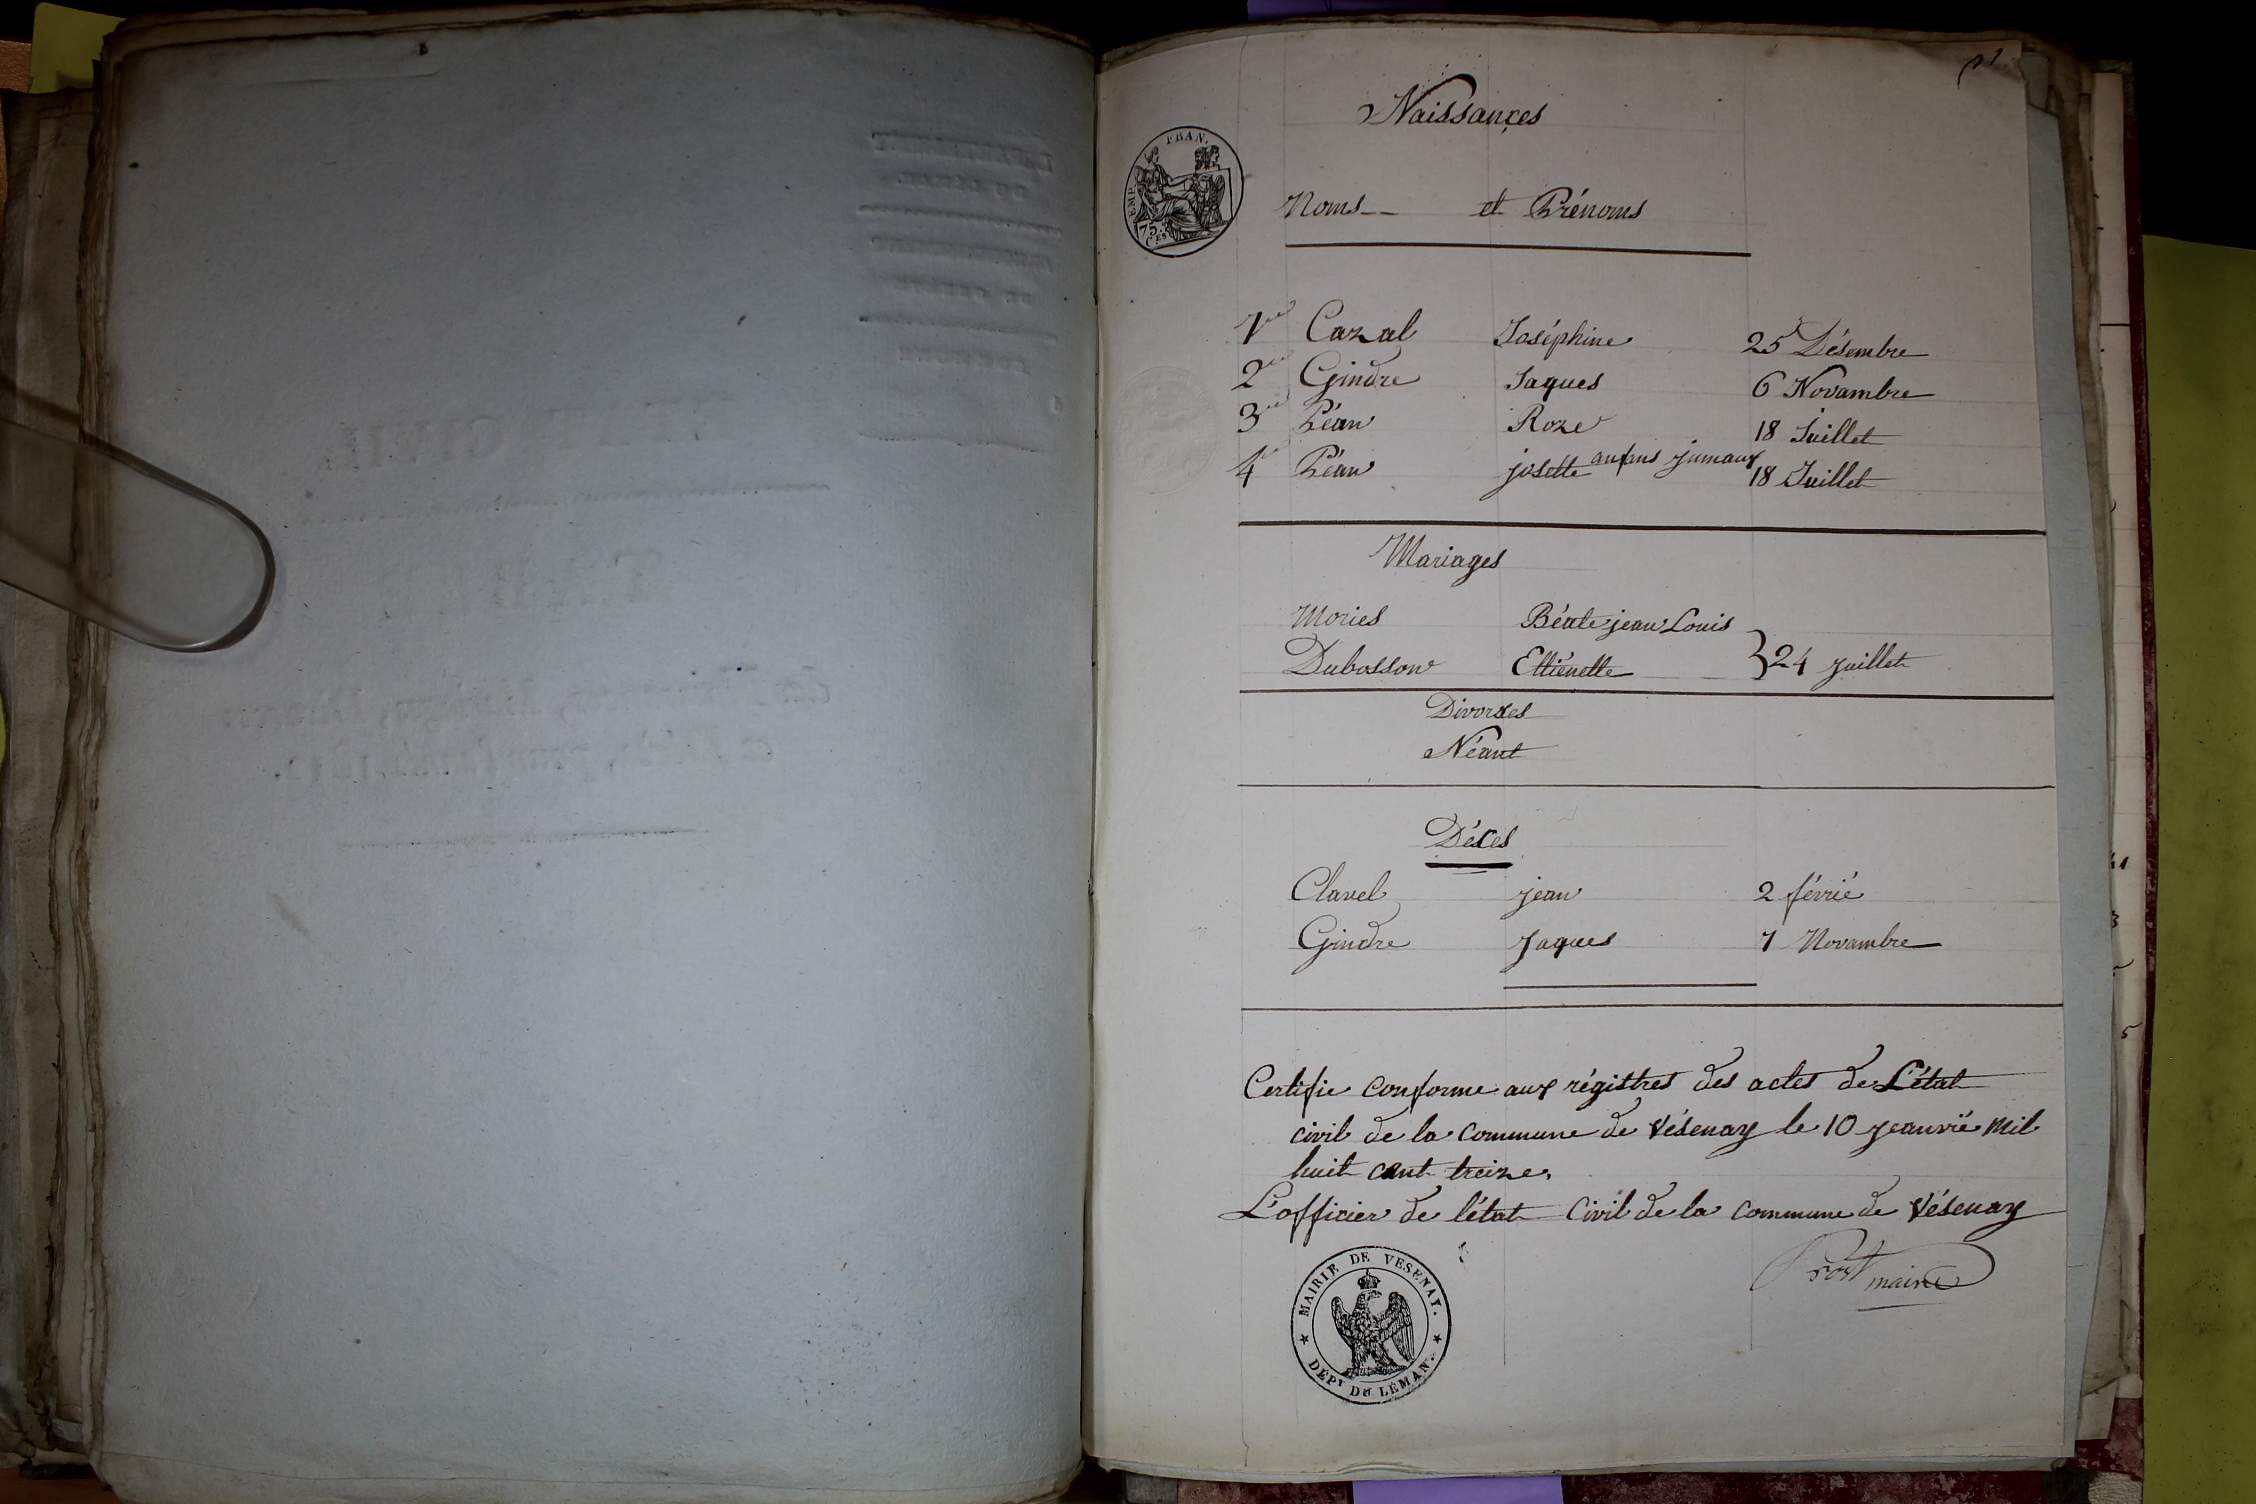 Naissançes
EMP. FRAN.
75.
CES
Noms -- et Prénoms
1re Cazal Joséphine 25 Désembre
2me Gindre Jaques 6 Novambre
3me Péan Roze 18 Juillet
4me Péan josette anfans jumaux 18 Juillet
Mariages
Mories Béate jean Louis
Dubosson Ettiénette } 24 juillet
Divorses
Néant
Déces
Clavel jean 2 févrié
Gindre Jaques 7 Novambre
Certifie conforme aux régistres des actes de L'état
civil de la commune de Vésenay le 10 jeanvié mil
huit cant treize.
L'officier de l'état Civil de la commune de Vésenay
Prost maire
MAIRIE DE VESENAY.
DÉPT DU LÉMAN.